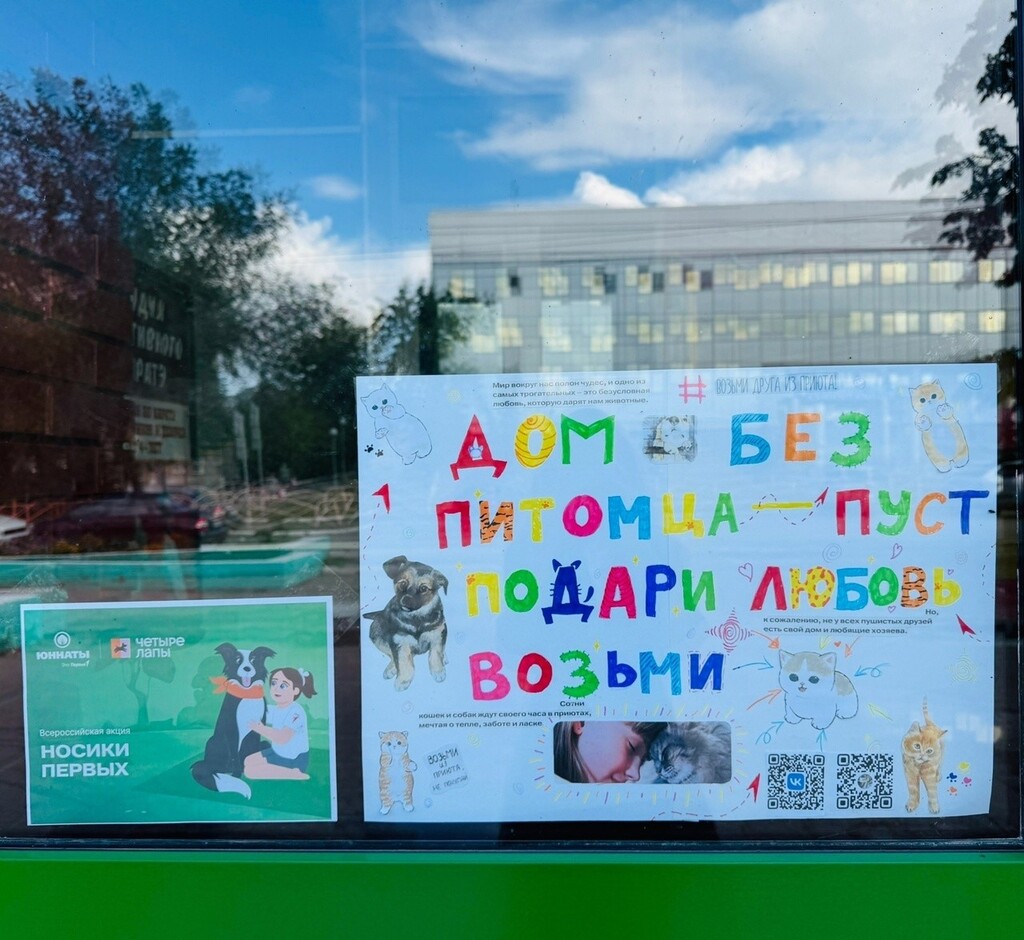 Мир вокруг нас полон чудес, и одно из
самых трогательных – это безусловная
любовь, которую дарят нам животные.
# ВОЗЬМИ ДРУГА ИЗ ПРИЮТА!
ДОМ БЕЗ
ПИТОМЦА — ПУСТ
ПОДАРИ ЛЮБОВЬ
Но,
к сожалению, не у всех пушистых друзей
есть свой дом и любящие хозяева.
ВОЗЬМИ
Сотни
кошек и собак ждут своего часа в приютах,
мечтая о тепле, заботе и ласке
ВОЗЬМИ
ИЗ
ПРИЮТА,
НЕ ПОКУПАЙ
ЮННАТЫ
ЧЕТЫРЕ
ЛАПЫ
Всероссийская акция
НОСИКИ
ПЕРВЫХ